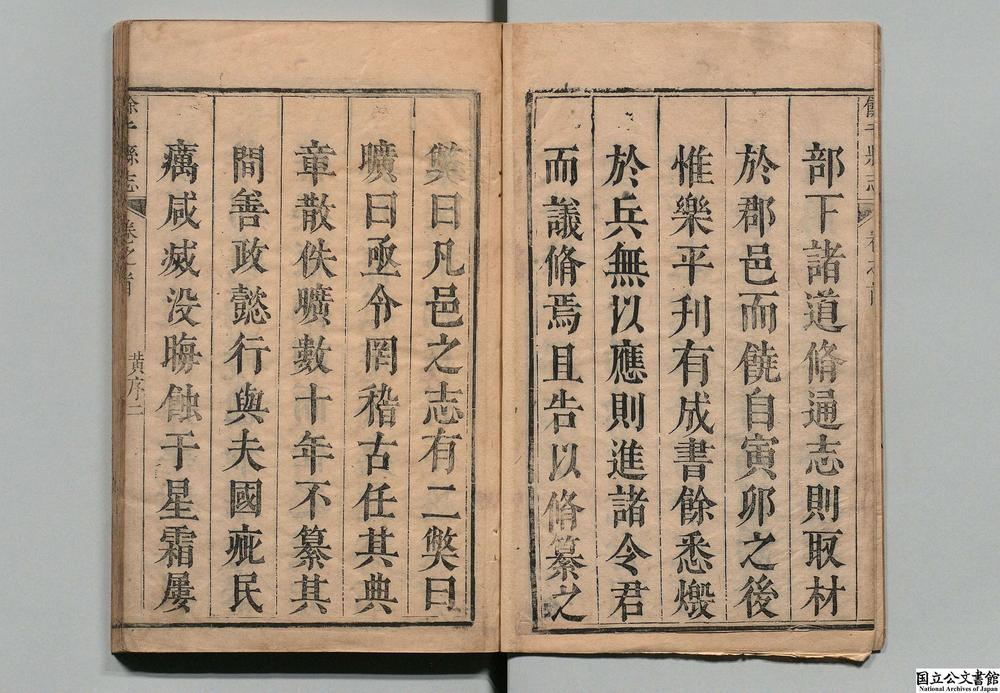 部下諸道脩通志則取材
於郡邑而饒自寅卯之後
惟樂平刋有成書餘悉燬
於兵無以應則進諸令君
而議脩焉且告以脩纂之
獘曰凡邑之志有二獘曰
曠曰亟令罔稽古任其典
章散佚曠數十年不纂其
間善政懿行與夫國疵民
癘咸烖没晦蝕于星霜屢
餘干縣志
卷之首
黄序二
国立公文書館
National Archives of Japan